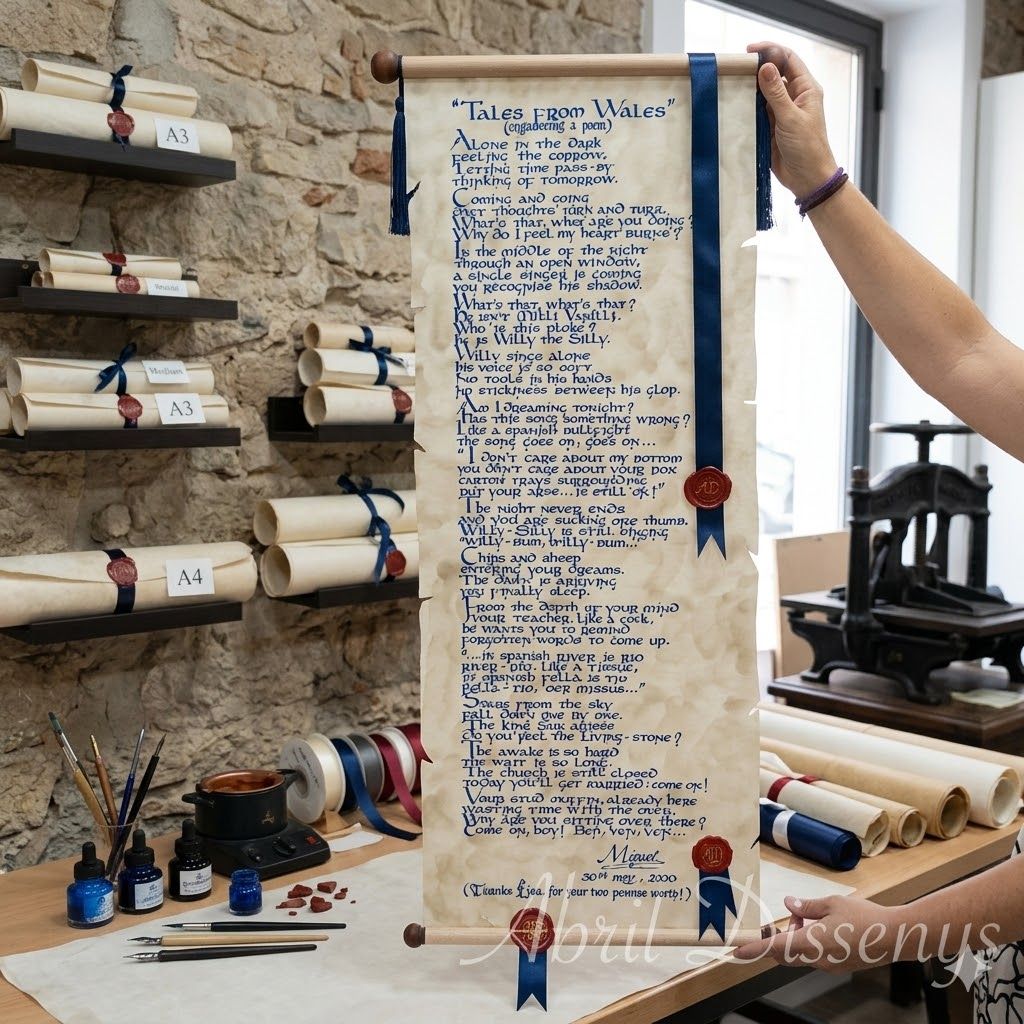 "Tales from Wales"
(engabeering a poem)
Alone in the dark
feeling the coppow,
Letting time pass-by
thinking of tomorrow.
Coming and coing
thoughts' turn and tura,
What's that, wher are you doing?
Why do I feel my heart burke?
Is the middle of the right
through an open window,
a single singer is coming
you recognise his shadow.
What's that, what's that?
He isn't Milli Vanilli,
Who 'is this ploke?
he is Willy the Silly.
Willy since alone
his voice is so
No tools in his hands
no stickiness between his glop.
Am I dreaming tonight?
Has this song something wrong?
Like a spanish bullfight
the song goes on, goes on...
"I don't care about my bottom
you don't care about your box
carton trays surrounding
put your arse... is still 'ok!"
The night never ends
and you are sucking ore thumb.
Willy-Silly is still
"willy-bum, willy-bum...
Chips and aheep
entering your dreams.
The dawn is arriving
you finally sleep.
From the depth of your mind
your teacher, like a cock,
he wants you to remind
forgotten words to come up.
"...in spanish river is rio
river-pio, like a tissue,
spanish fella is tio
fella-tio, 'oer missus..."
from the sky
fall one by one.
The king Sun
do you feel the Living-stone?
The awake is so hard
the wait is so long.
The church is still closed
today you'll get married: come on!
Your stud muffin, already here
wasting time with the
Why are you sitting over there?
Come on, boy! Ben, ven, ven...
Miquel
30th may, 2000
(Thanks for your two pense worth!)
A3
A3
A4
AD
Abril Dissenys